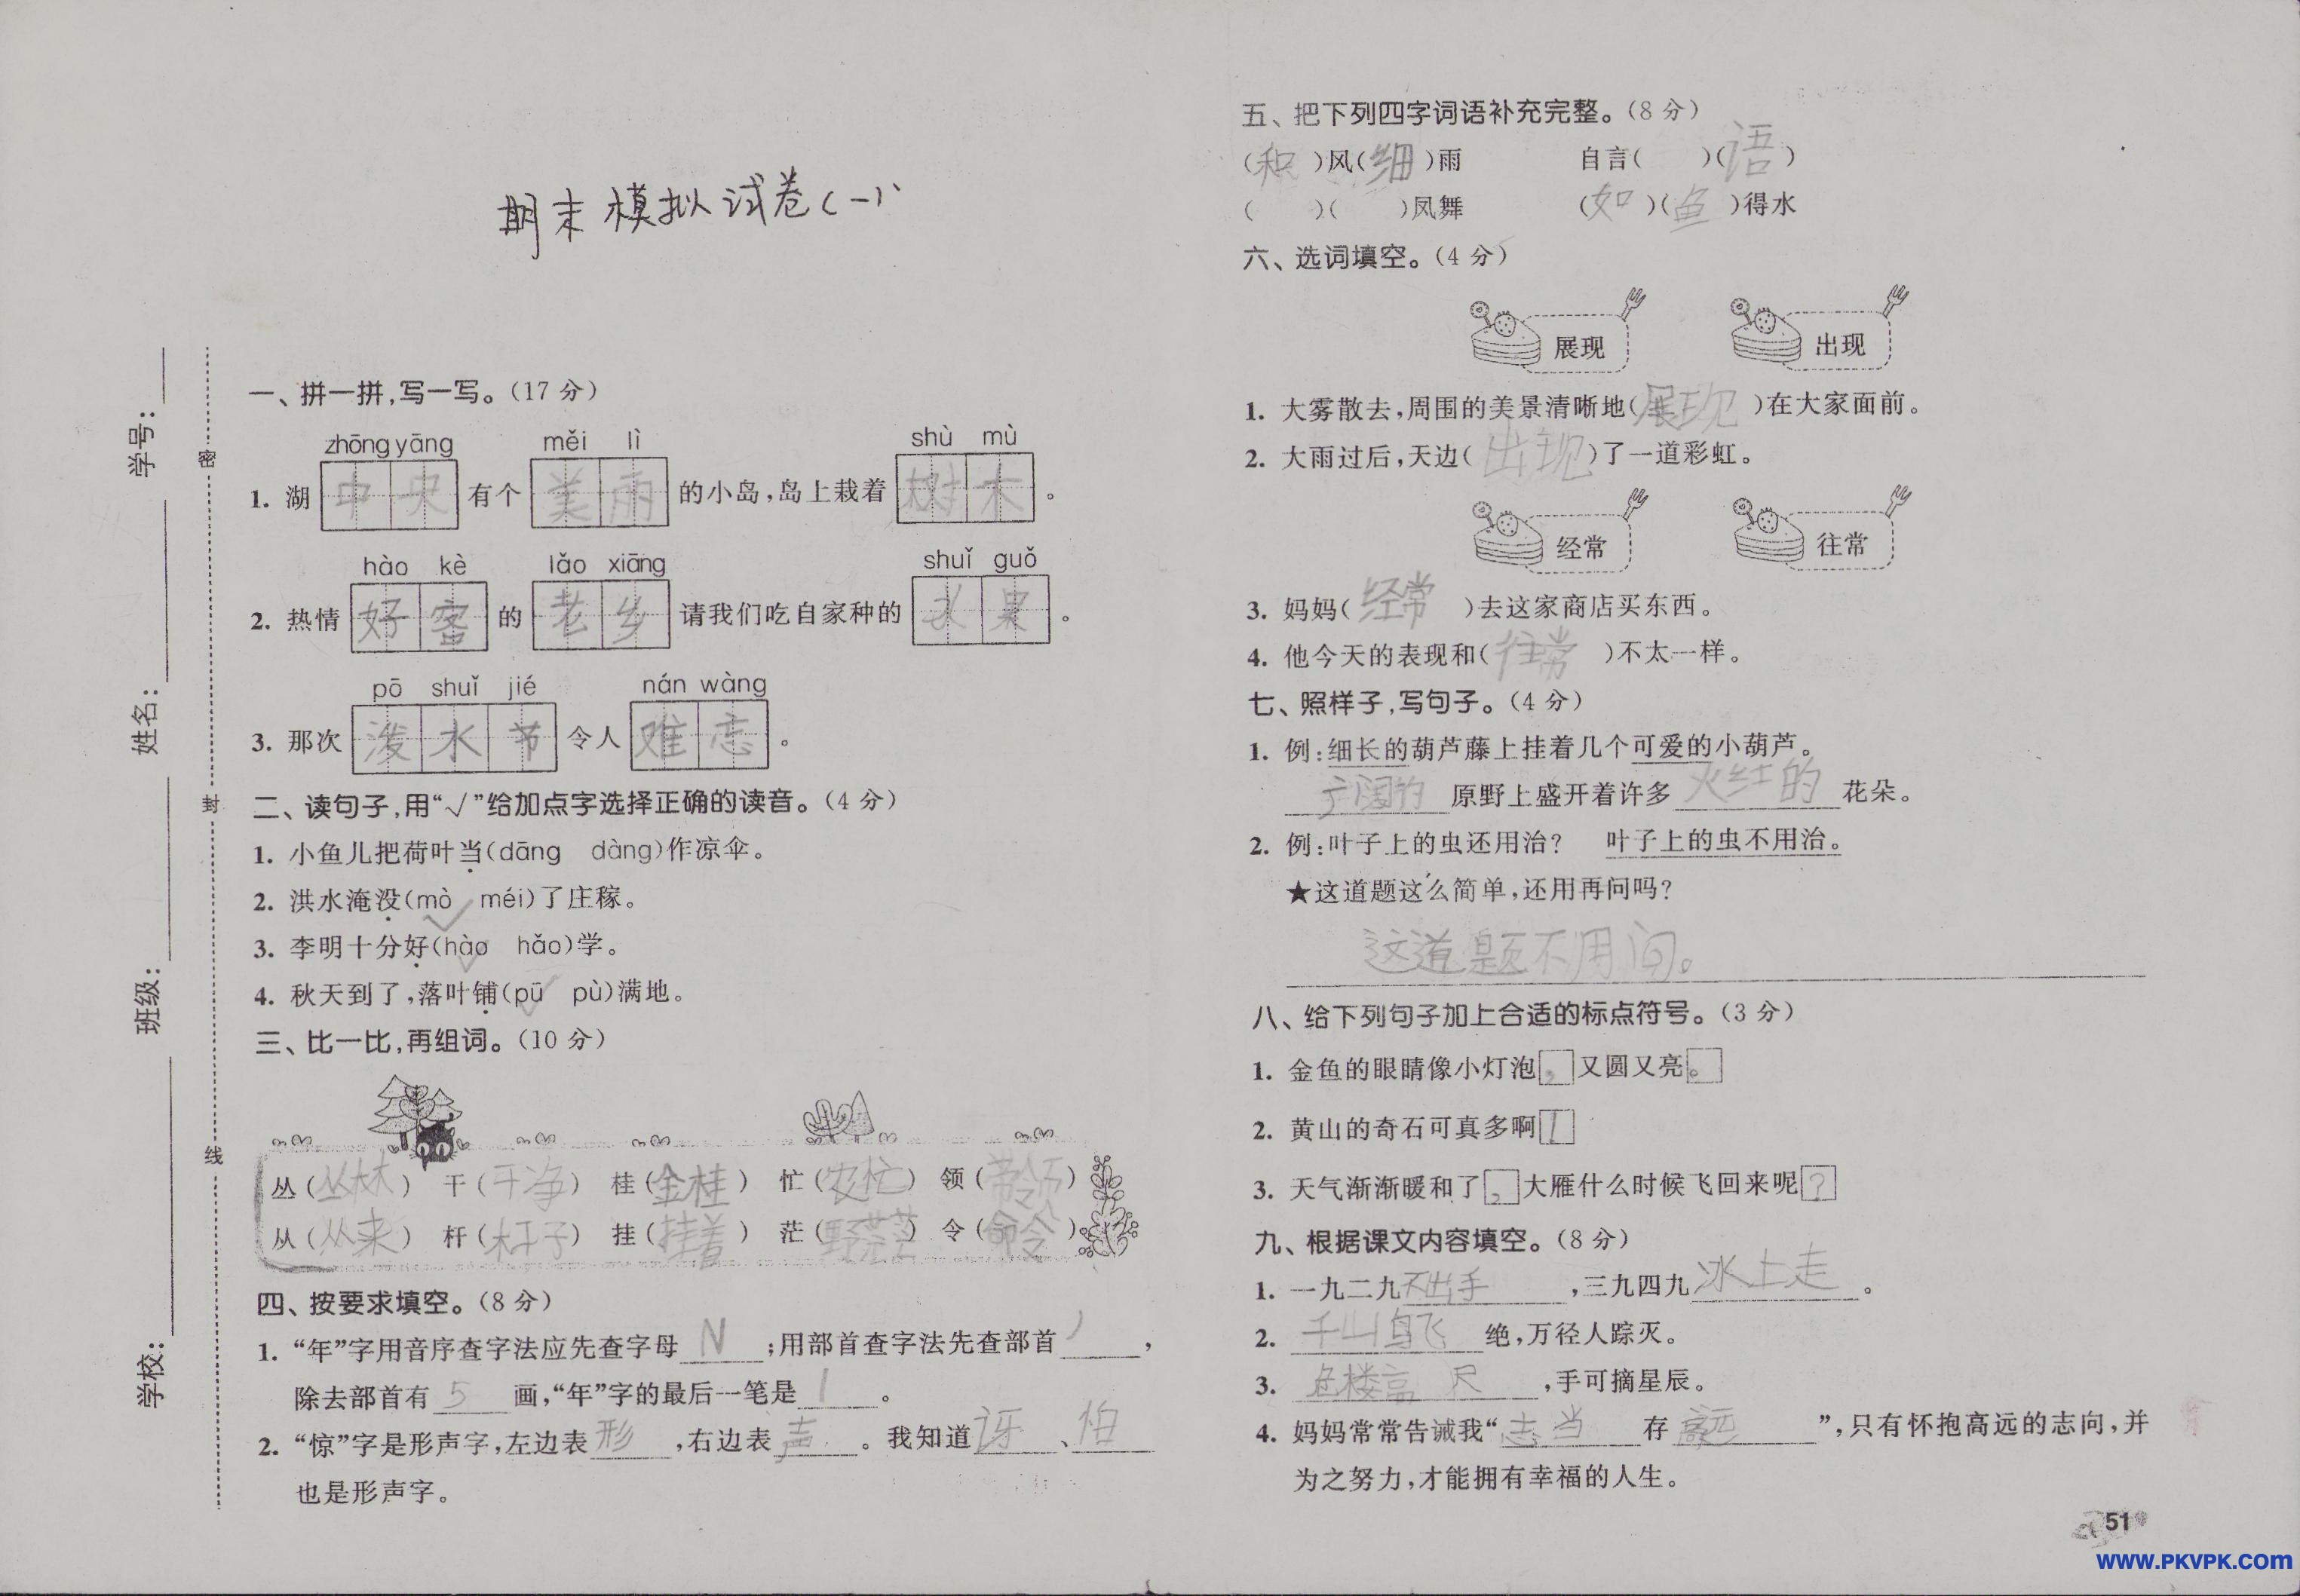 期末模拟试卷(一)
学校: 班级: 姓名: 学号:
密 封 线
一、拼一拼,写一写。(17 分)
zhōng yāng měi lì shù mù
1. 湖 中央 有个 美丽 的小岛,岛上栽着 树木 。
hào kè lǎo xiāng shuǐ guǒ
2. 热情 好客 的 老乡 请我们吃自家种的 水果 。
pō shuǐ jié nán wàng
3. 那次 泼水节 令人 难忘 。
二、读句子,用“√”给加点字选择正确的读音。(4 分)
1. 小鱼儿把荷叶当(dāng dàng)作凉伞。
2. 洪水淹没(mò√ méi)了庄稼。
3. 李明十分好(hào√ hǎo)学。
4. 秋天到了,落叶铺(pū√ pù)满地。
三、比一比,再组词。(10 分)
丛(丛林) 干(干净) 桂(金桂) 忙(农忙) 领(带领)
从(从来) 杆(杆子) 挂(挂着) 茫(野茫茫) 令(命令)
四、按要求填空。(8 分)
1. “年”字用音序查字法应先查字母 N ;用部首查字法先查部首 丿 ,
除去部首有 5 画,“年”字的最后一笔是 丨 。
2. “惊”字是形声字,左边表 形 ,右边表 声 。我知道 讶 、 怕
也是形声字。
五、把下列四字词语补充完整。(8 分)
(和)风(细)雨 自言( )(语)
( )( )凤舞 (如)(鱼)得水
六、选词填空。(4 分)
展现 出现
1. 大雾散去,周围的美景清晰地(展现)在大家面前。
2. 大雨过后,天边(出现)了一道彩虹。
经常 往常
3. 妈妈(经常)去这家商店买东西。
4. 他今天的表现和(往常)不太一样。
七、照样子,写句子。(4 分)
1. 例:细长的葫芦藤上挂着几个可爱的小葫芦。
广阔的 原野上盛开着许多 火红的 花朵。
2. 例:叶子上的虫还用治? 叶子上的虫不用治。
★这道题这么简单,还用再问吗?
这道题不用问。
八、给下列句子加上合适的标点符号。(3 分)
1. 金鱼的眼睛像小灯泡,又圆又亮。
2. 黄山的奇石可真多啊!
3. 天气渐渐暖和了,大雁什么时候飞回来呢?
九、根据课文内容填空。(8 分)
1. 一九二九 不出手 ,三九四九 冰上走 。
2. 千山鸟飞 绝,万径人踪灭。
3. 危楼高 尺 ,手可摘星辰。
4. 妈妈常常告诫我“ 志当 存 高远 ”,只有怀抱高远的志向,并
为之努力,才能拥有幸福的人生。
51
www.PKVPK.com